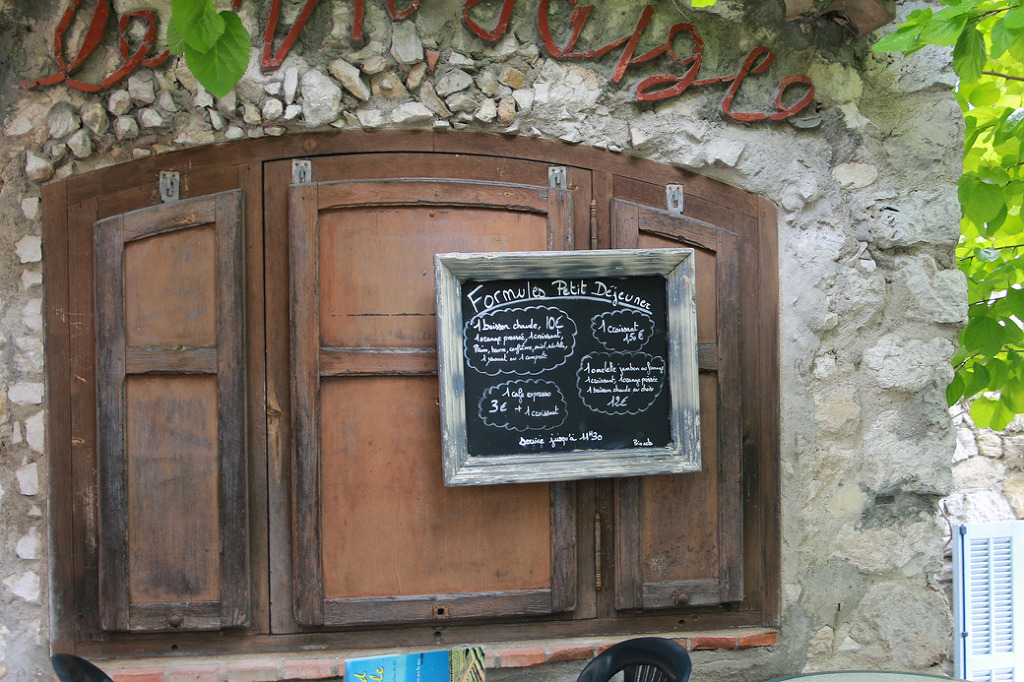 Le Vi
Formules Petit Déjeuner
1 boisson chaude, 10€
1 orange pressée, 1 croissant,
Pain, beurre, confiture, miel
1 yaourt ou 1 compote
1 croissant
1,50€
1 omelette jambon ou fromage
1 croissant, 1 orange pressée
1 boisson chaude au choix
12€
1 café expresso
3€ + 1 croissant
Service jusqu'à 11H30